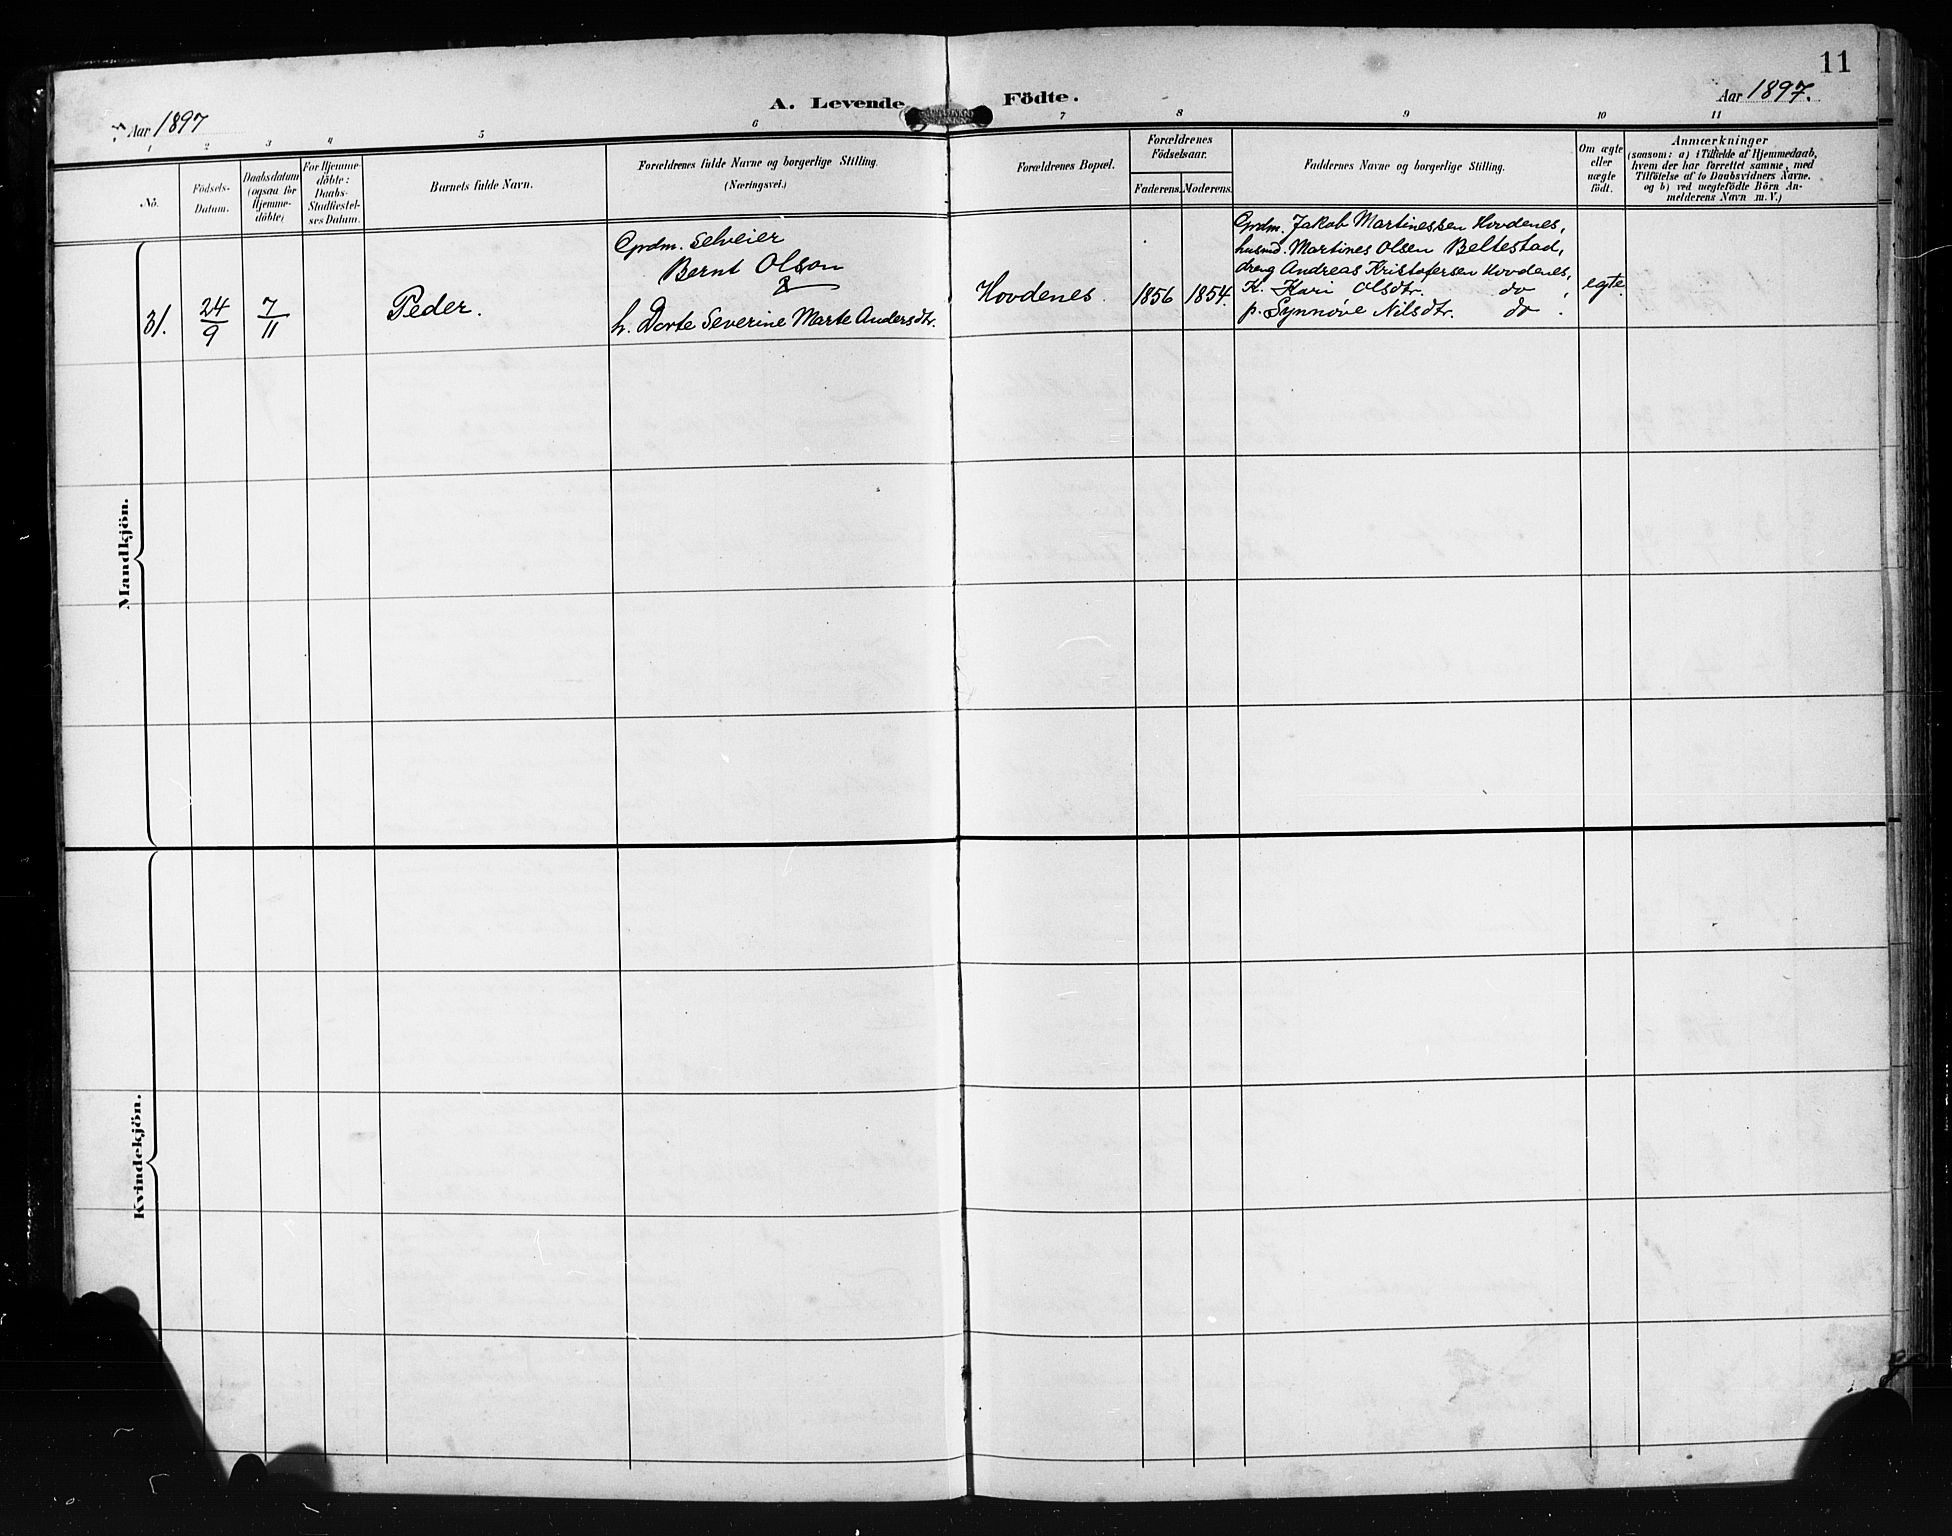 11
A. Levende Födte.
Aar 1897
Aar 1897.
1 2 3 4 5 6 7 8 9 10 11
No.
Födsels-
Datum.
Daabsdatum
(ogsaa for
Hjemme-
döbte)
For Hjemme-
döbte:
Daabs-
Stadfæstel-
ses Datum.
Barnets fulde Navn.
Forældrenes fulde Navne og borgerlige Stilling.
(Næringsvei.)
Forældrenes Bopæl.
Forældrenes
Födselsaar.
Faderens. Moderens.
Faddernes Navne og borgerlige Stilling.
Om ægte
eller
uægte
födt.
Anmærkninger
(saasom: a) i Tilfælde af Hjemmedaab,
hvem der har forrettet samme, med
Tilföielse af to Daabsvidners Navne.
og b) ved uægtefödte Börn An-
melderens Navn m. V.)
Mandkjön.
31.
24/9
7/11
Peder.
Grdm. selveier
Bernt Olson
&
h. Dorte Severine Marte Andersdtr.
Hovdenes.
1856
1854.
Grdm. Jakob Martinessen Hovdenes,
husmd. Martines Olsen Beltestad,
dreng Andreas Kristofersen Hovdenes,
K. Kari Olsdtr. do ,
p. Synnøve Nilsdtr. do .
egte.
Kvindekjön.